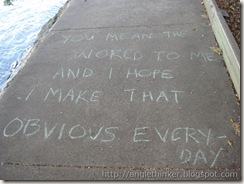 YOU MEAN THE
WORLD TO ME
AND I HOPE
I MAKE THAT
OBVIOUS EVERY-
DAY
http://anglethinker.blogspot.com